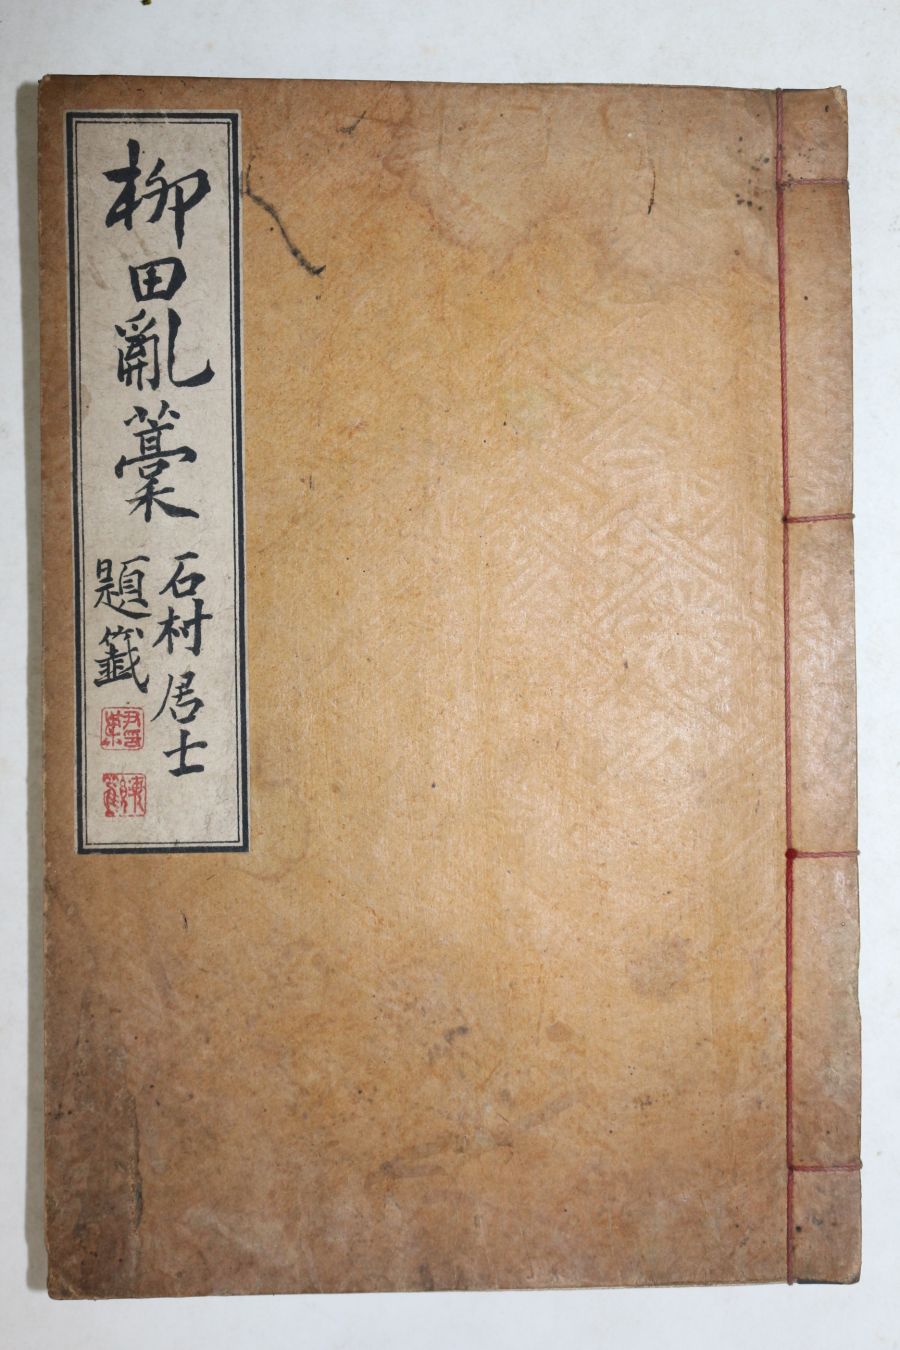 柳田亂藁
石村居士
題籤